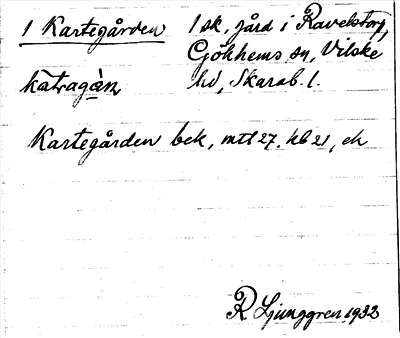 1 Kartegården 1 sk. gård i Ravelstorp,
Gökhems sn, Vilske
kàtragàn hd, Skarab. l.
Kartegården bek, mtl 27. hb 21, ek
R Ljunggren 1932